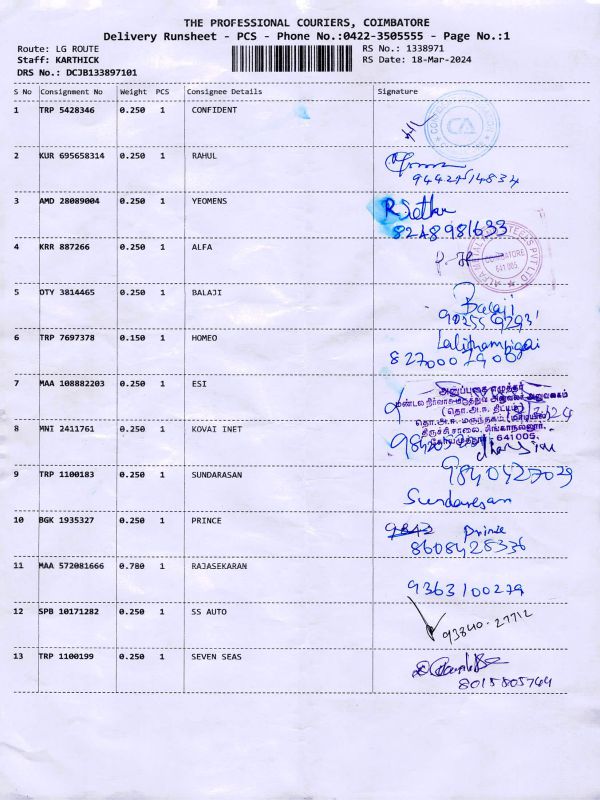 THE PROFESSIONAL COURIERS, COIMBATORE
Delivery Runsheet - PCS - Phone No.:0422-3505555 - Page No.:1
Route: LG ROUTE RS No.: 1338971
Staff: KARTHICK RS Date: 18-Mar-2024
DRS No.: DCJB133897101
S No Consignment No Weight PCS Consignee Details Signature
1 TRP 5428346 0.250 1 CONFIDENT
CA
2 KUR 695658314 0.250 1 RAHUL
3 AMD 28089004 0.250 1 YEOMENS
8248981633
4 KRR 887266 0.250 1 ALFA
COIMBATORE
641 005
5 DTY 3814465 0.250 1 BALAJI
Balaji
6 TRP 7697378 0.150 1 HOMEO
7 MAA 108882203 0.250 1 ESI
அனுப்புகை எழுத்தர்
(தொ.அ.ஈ. திட்டம்)
திருச்சி சாலை, சிங்காநல்லூர்,
கோயமுத்தூர் - 641005.
8 MNI 2411761 0.250 1 KOVAI INET
9840427029
9 TRP 1100183 0.250 1 SUNDARASAN
Sundaresan
10 BGK 1935327 0.250 1 PRINCE
Prince
8608428336
11 MAA 572081666 0.780 1 RAJASEKARAN
9363100279
12 SPB 10171282 0.250 1 SS AUTO
93840-27712
13 TRP 1100199 0.250 1 SEVEN SEAS
8015805764